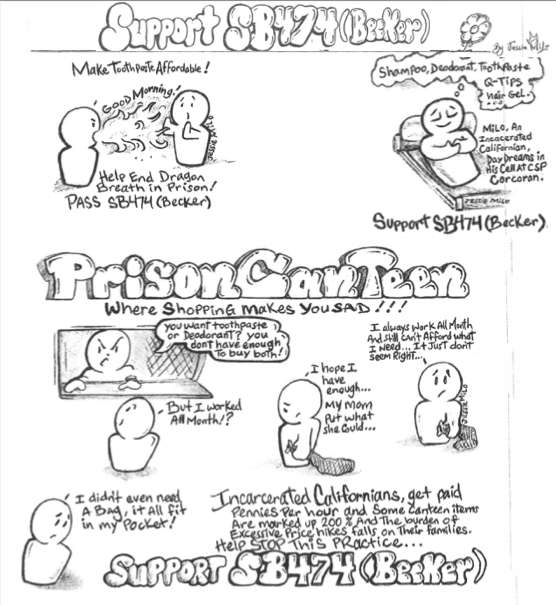 Support SB474 (Becker)
By Jessie Milo
Make Toothpaste Affordable!
Good Morning!
Jessie Milo
Help End Dragon
Breath in Prison!
PASS SB474 (Becker)
Shampoo, Deodorant, Toothpaste
Q-Tips
Hair Gel.
...
Milo, An
Incacerated
Californian,
Day Dreams in
His Cell At CSP
Corcoran.
Jessie Milo
Support SB474 (Becker).
Prison Canteen
Where Shopping Makes You SAD!!!
You want toothpaste
or Deodorant? you
dont have enough
to buy both!
But I worked
All Month!?
I hope I
have
enough...
My Mom
Put what
she Could...
I always work All Month
And still can't Afford what
I Need... It Just don't
seem Right...
Jessie Milo
I didn't even need
A Bag, it All fit
in my Pocket!
Incarcerated Californians, get paid
Pennies Per hour and Some Canteen items
Are marked up 200% And The burden of
Excessive Price hikes falls on Their families.
Help STOP This Practice...
Support SB474 (Becker)